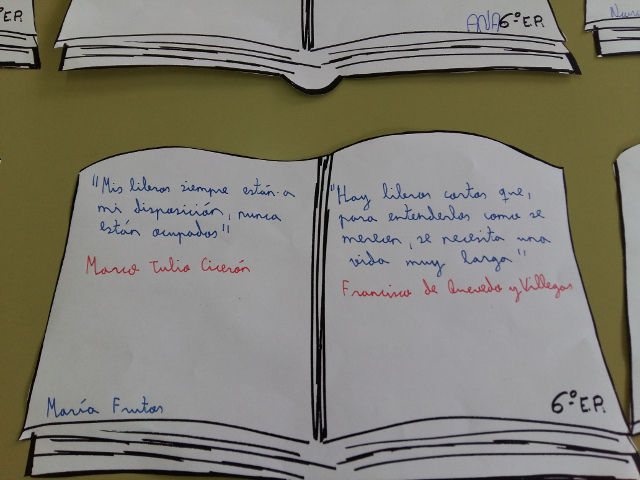 ºE.P.
ANA 6º E.P.
"Mis libros siempre están a
mi disposición, nunca
están ocupados"
Marco Tulio Cicerón
María Frutos
"Hay libros cortos que,
para entenderlos como se
merecen, se necesita una
vida muy larga"
Francisco de Quevedo y Villegas
6º E.P.